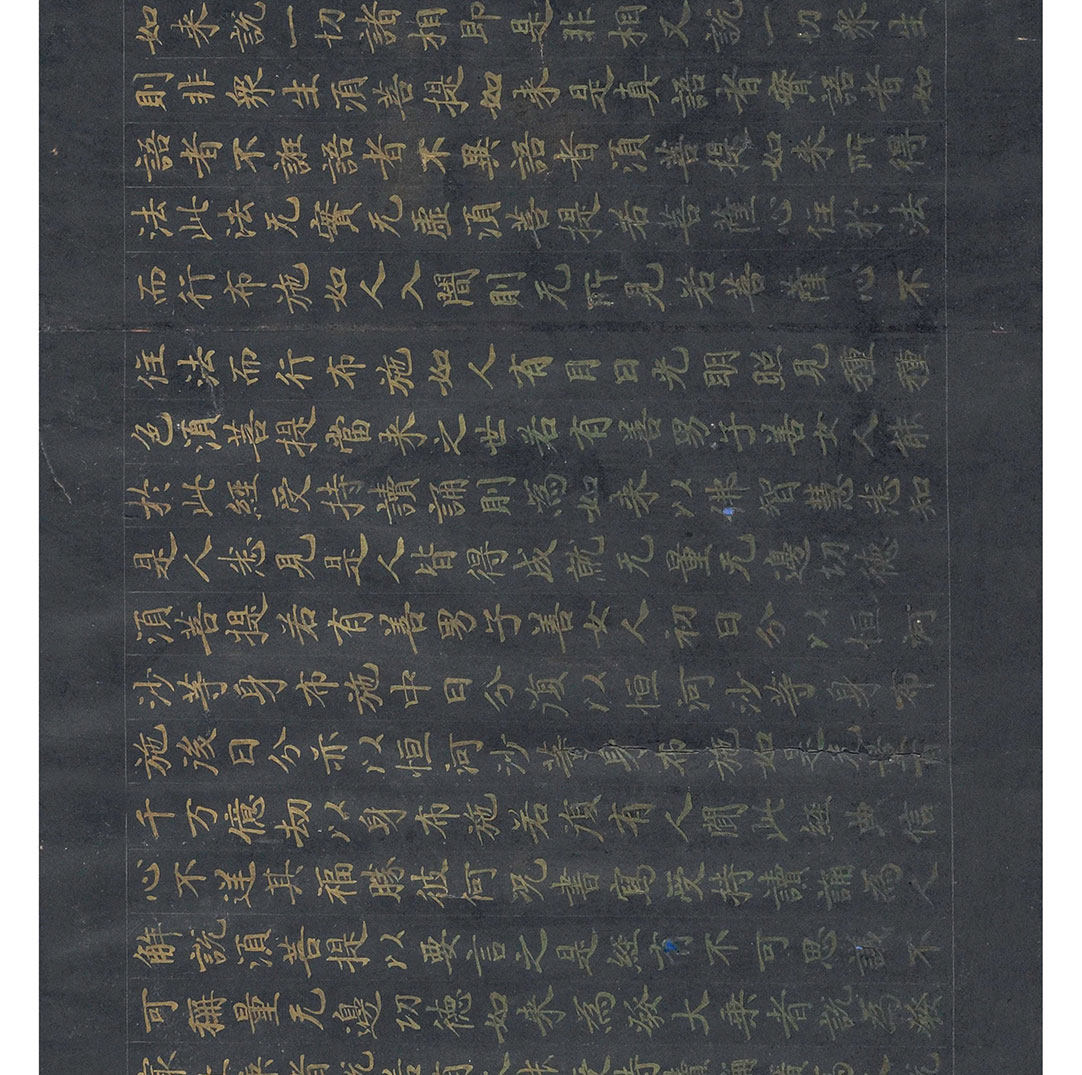 如来說一切諸相即是非相又說一切衆生
則非衆生湏菩提如来是真語者實語者如
語者不誑語者不異語者湏菩提如来所得
法此法无實无虛湏菩提若菩薩心住於法
而行布施如人入闇則无所見若菩薩心不
住法而行布施如人有目日光明照見種種
色湏菩提當来之世若有善男子善女人能
於此經受持讀誦則為如来以佛智慧悉知
是人悉見是人皆得成就无量无邊功德
湏菩提若有善男子善女人初日分以恒河
沙等身布施中日分復以恒河沙等身布
施後日分亦以恒河沙等身布施如是无量百
千万億劫以身布施若復有人聞此經典信
心不逆其福勝彼何况書寫受持讀誦為人
解說湏菩提以要言之是經有不可思議不
可稱量无邊功德如来為發大乘者說為發